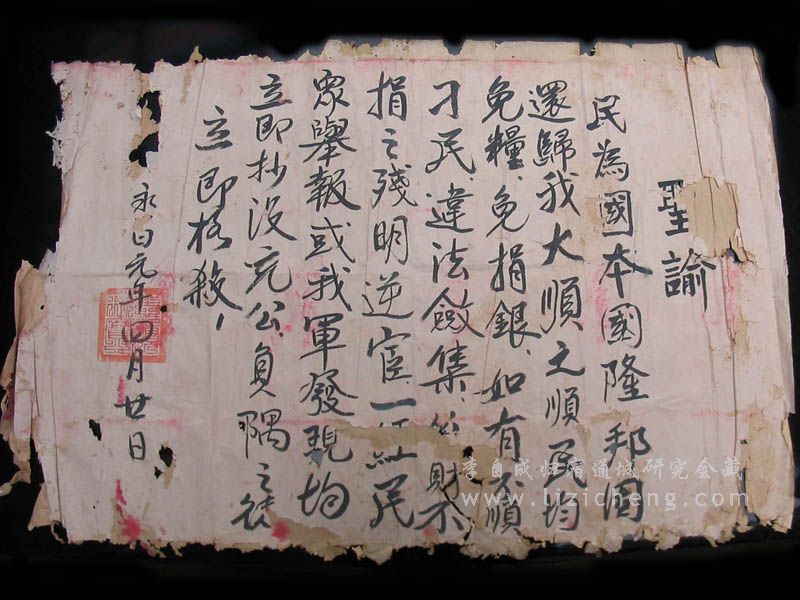 聖諭
民為國本國隆邦固
還歸我大順之順民均
免糧、免捐銀、如有不順
刁民違法斂集、財不
捐之殘明逆宦一經民
眾舉報或我軍發現均
立即抄沒充公負隅之
立即格殺
永昌元年四月廿日
李自成归宿通城研究会藏
www.lizicheng.com